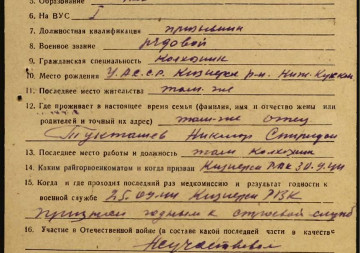 5. Образование
6. На ВУС I
7. Должностная квалификация призывник
8. Военное звание рядовой
9. Гражданская специальность колхозник
10. Место рождения У.АС.СР. Кизнерск р-н.
11. Последнее место жительства там-же
12. Где проживает в настоящее время семья (фамилия, имя и отчество жены или
родителей и точный их адрес) там-же отец
Николай Спиридон
13. Последнее место работы и должность там колхозник
14. Каким райгорвоенкоматом и когда призван Кизнерск РВК 30.9.41
15. Когда и где проходил последний раз медкомиссию и результат годности к
военной службе 25.09.41 Кизнерск РВК
признан годным к строевой службе
16. Участие в Отечественной войне (в составе какой последней части в качестве
Не участвовал